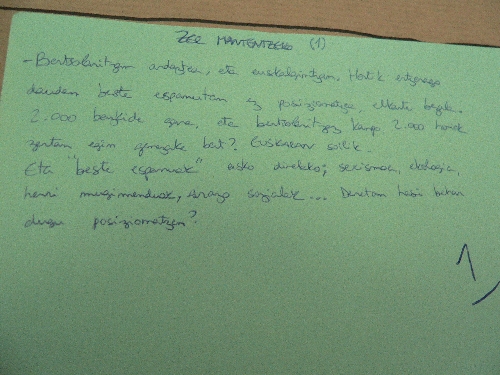 ZER MANTENTZEKO (1)
- Bertsolaritzan ardaztea, eta euskalgintzan. Hortik
dauden beste esparruetan ez posizionatzea, elkarte bezala.
2.000 bazkide gara, eta bertsolaritzaz kanpo 2.000 horiek
zertan egin genezake bat? Euskaran soilik.
Eta "beste esparruak" asko direlako; sexismoa, ekologia,
herri mugimenduak, arazo sozialak... Denetan hasi behar
dugu posizionatzen?